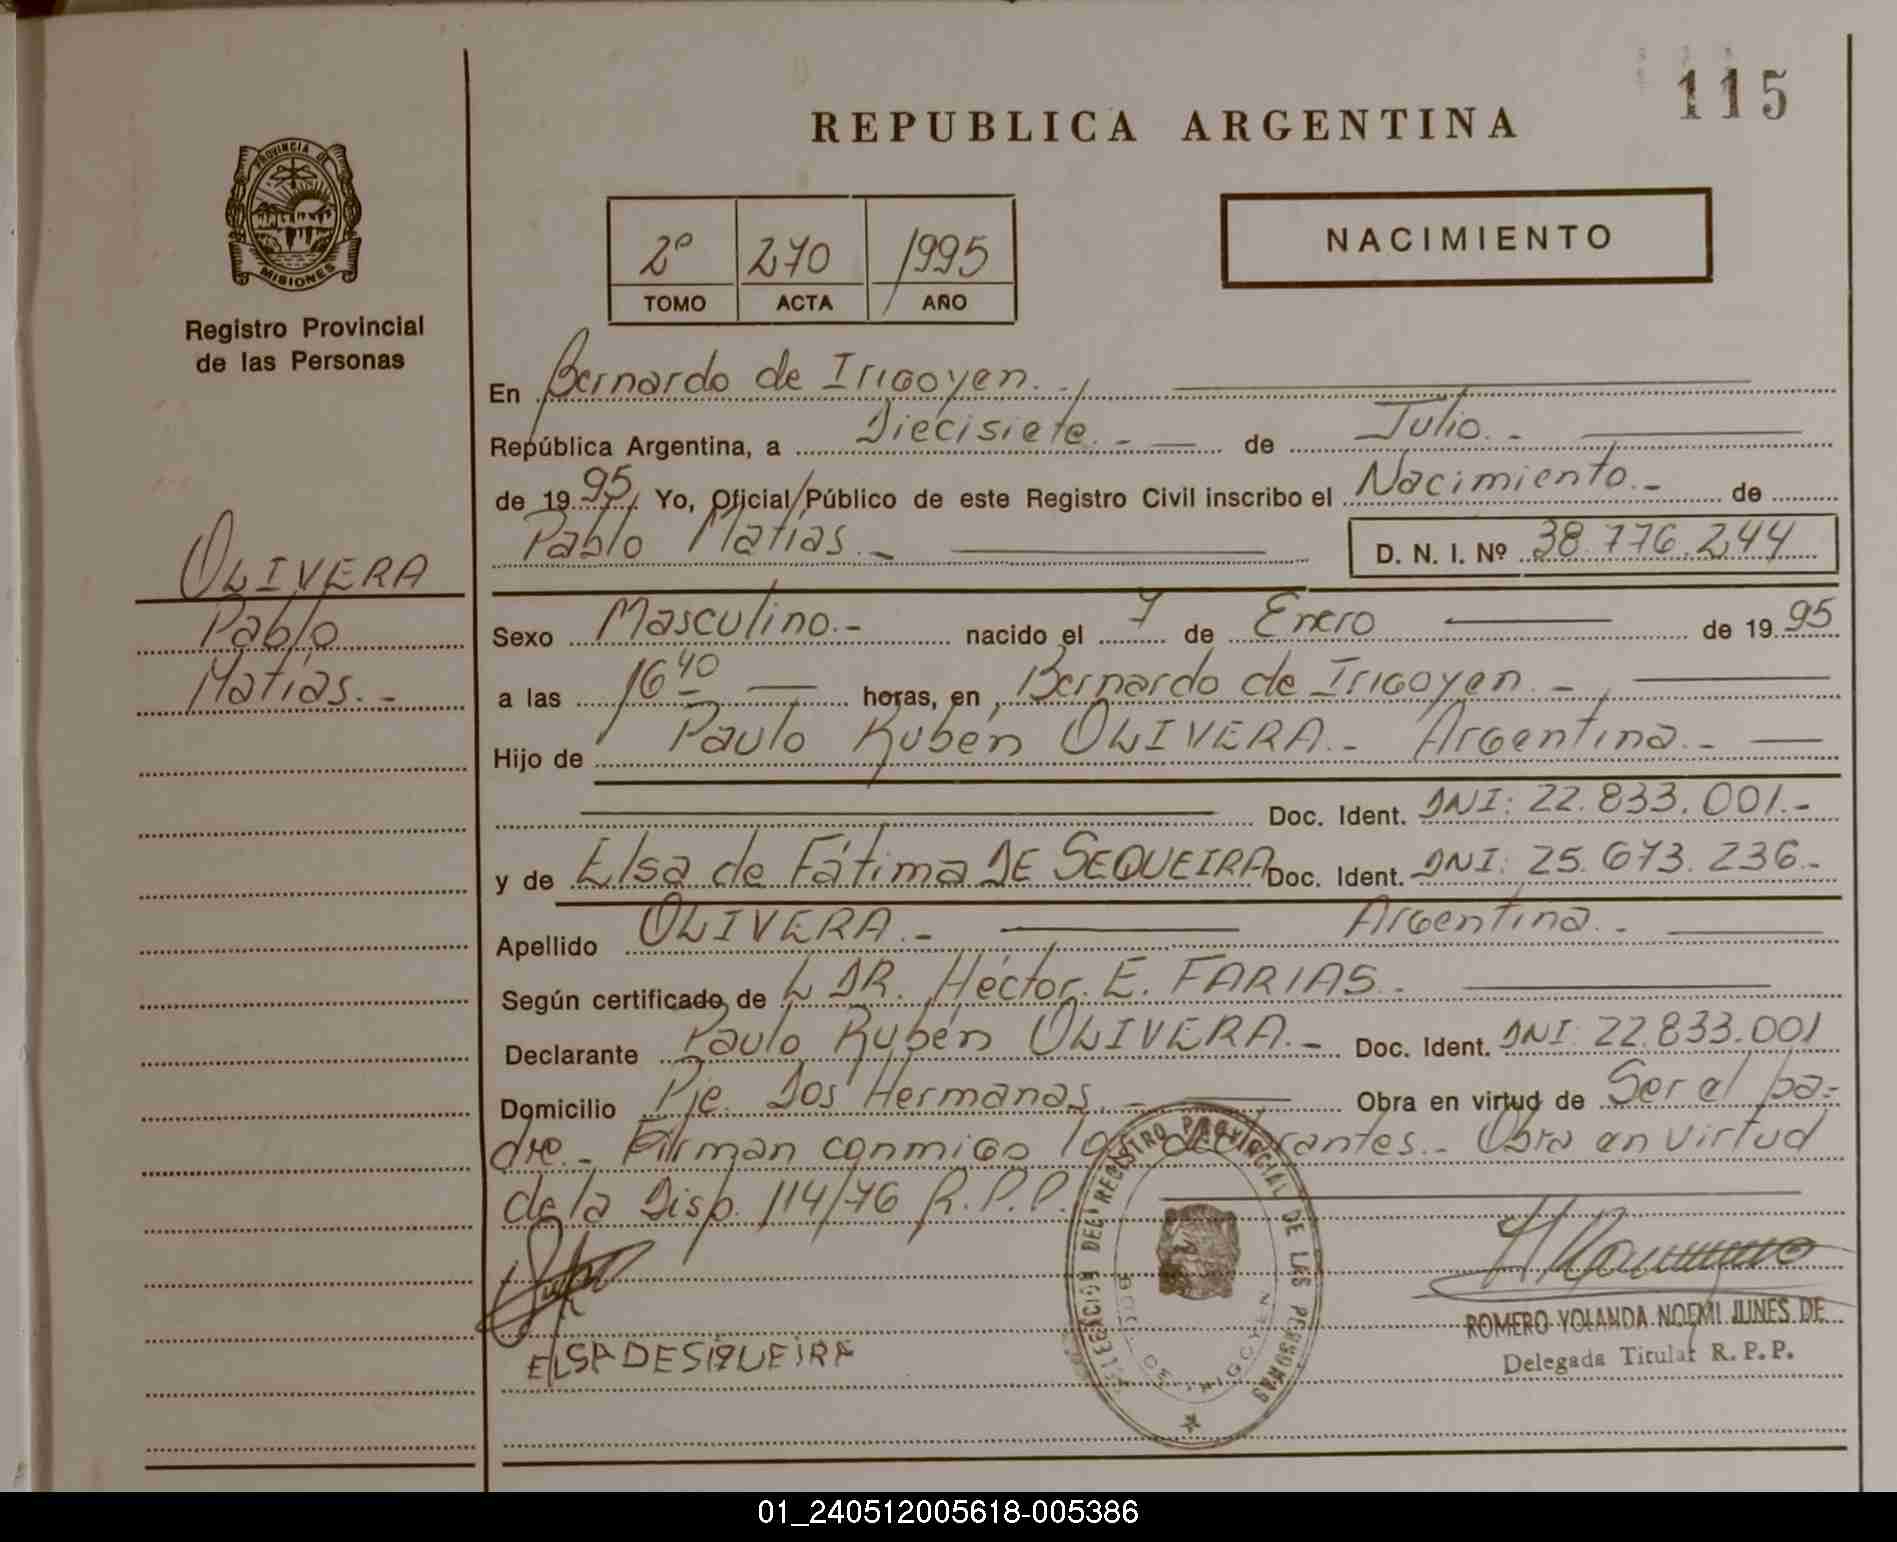 115
REPUBLICA ARGENTINA
PROVINCIA DE
MISIONES
Registro Provincial
de las Personas
2º 270 1995
TOMO ACTA AÑO
NACIMIENTO
En Bernardo de Irigoyen.-
República Argentina, a Diecisiete.- de Julio.-
de 1995, Yo, Oficial Público de este Registro Civil inscribo el Nacimiento.- de
Pablo Matías.- D. N. I. Nº 38.776.244
OLIVERA
Pablo
Matías.-
Sexo Masculino.- nacido el 7 de Enero de 1995
a las 16 40 horas, en Bernardo de Irigoyen.-
Hijo de Paulo Rubén OLIVERA.- Argentina.-
Doc. Ident. DNI: 22.833.001.-
y de Elsa de Fátima DE SEQUEIRA Doc. Ident. DNI: 25.673.236.-
Apellido OLIVERA.- Argentina.-
Según certificado de L DR. Héctor E. FARIAS.-
Declarante Paulo Rubén OLIVERA.- Doc. Ident. DNI: 22.833.001
Domicilio Pje. Dos Hermanas.- Obra en virtud de Ser el pa-
dre.- Firman conmigo los declarantes.- Obra en virtud
de la Disp. 114/76 R.P.P.
DIRECCION DEL REGISTRO PROVINCIAL DE LAS PERSONAS
DE IRIGOYEN
ELSA DE SIQUEIRA
ROMERO YOLANDA NOEMI JUNES DE
Delegada Titular R. P. P.
01_240512005618-005386